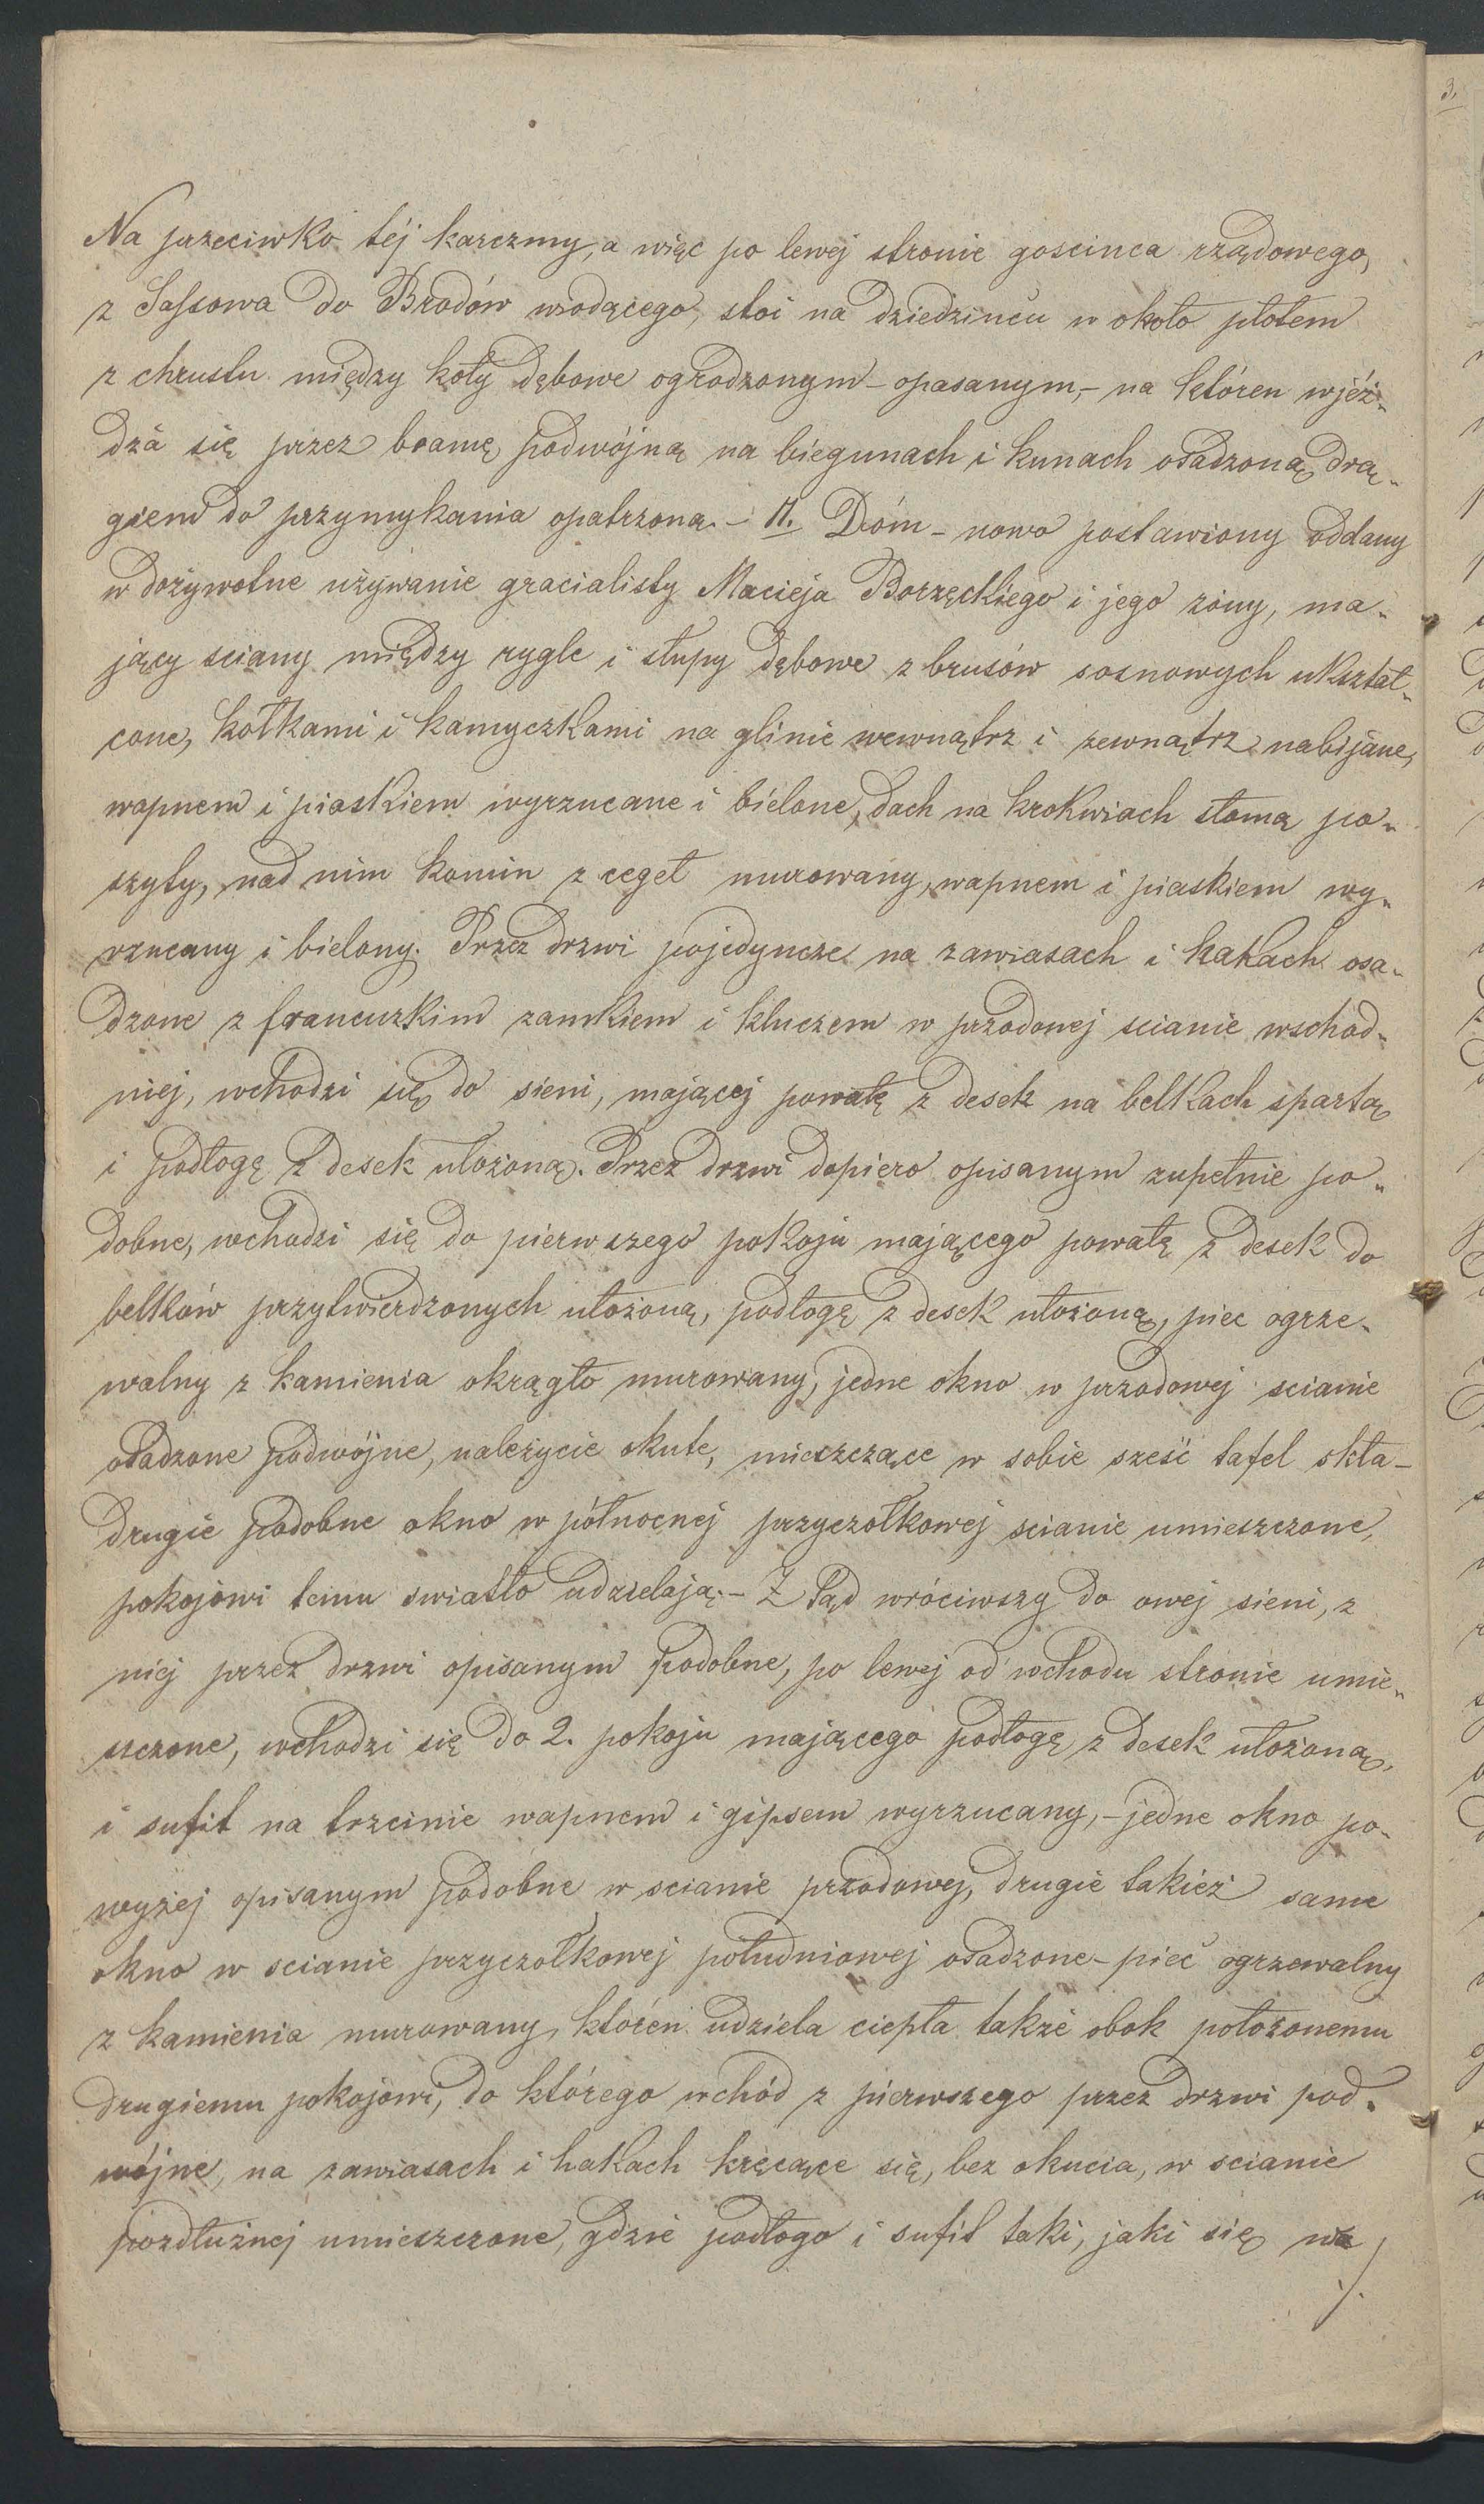 Na przeciwko téj karczmy, a więc po lewej stronie goscinca rządowego,
z Sassowa do Brodów wiodącego, stoi na dziedzincu w około płotem
z chrustu między koły dębowe ogrodzonym - opasanym, - na któren wjéż„
dża się przez bramę podwójną na biegunach i kunach osadzoną, drą„
giem do przymykania opatrzoną. - II. Dóm - nowo postawiony oddany
w dożywotne używanie gracialisty Macieja Borzęckiego i jego żony, ma„
jący sciany między rygle i słupy dębowe z brusów sosnowych ukształ„
cone, kołkami i kamyczkami na glinie wewnątrz i zewnątrz nabijane,
wapnem i piaskiem wyrzucane i bielone, dach na krokwiach słomą po„
szyty, nad nim komin z cegeł murowany, wapnem i piaskiem wy„
rzucany i bielony. Przez drzwi pojedyncze na zawiasach i hakach osa„
dzone z francuzkim zamkiem i kluczem w przodowej scianie wschod„
niej, wchodzi się do sieni, mającej powałę z desek na belkach spartą
i podłogę z desek ułożoną. Przez drzwi dopiero opisanym zupełnie po„
dobne, wchodzi się do pierwszego pokoju mającego powałę z desek do
belków przytwierdzonych ułożoną, podłogę z desek ułożoną, piec ogrze„
walny z kamienia okrągło murowany, jedne okno w przodowej scianie
osadzone podwójne, należycie okute, mieszczące w sobie sześć tafel skła -
drugie podobne okno w północnej przyczołkowej scianie umieszczone,
pokojowi temu swiatło udzielają. - Z tąd wróciwszy do owej sieni, z
niej przez drzwi opisanym podobne, po lewej od wchodu stronie umie„
szczone, wchodzi się do 2. pokoju mającego podłogę z desek ułożoną,
i sufit na trzcinie wapnem i gipsem wyrzucany, - jedne okno po„
wyżej opisanym podobne w scianie przodowej, drugie takież same
okno w scianie przyczołkowej południowej osadzone - piec ogrzewalny
z kamienia murowany, któren udziela ciepła także obok położonemu
drugiemu pokojowi, do którego wchód z pierwszego przez drzwi pod„
wójne, na zawiasach i hakach kręcące się, bez okucia, w scianie
pozdłużnej umieszczone, gdzie podłoga i sufit taki, jaki się w
./.
3.